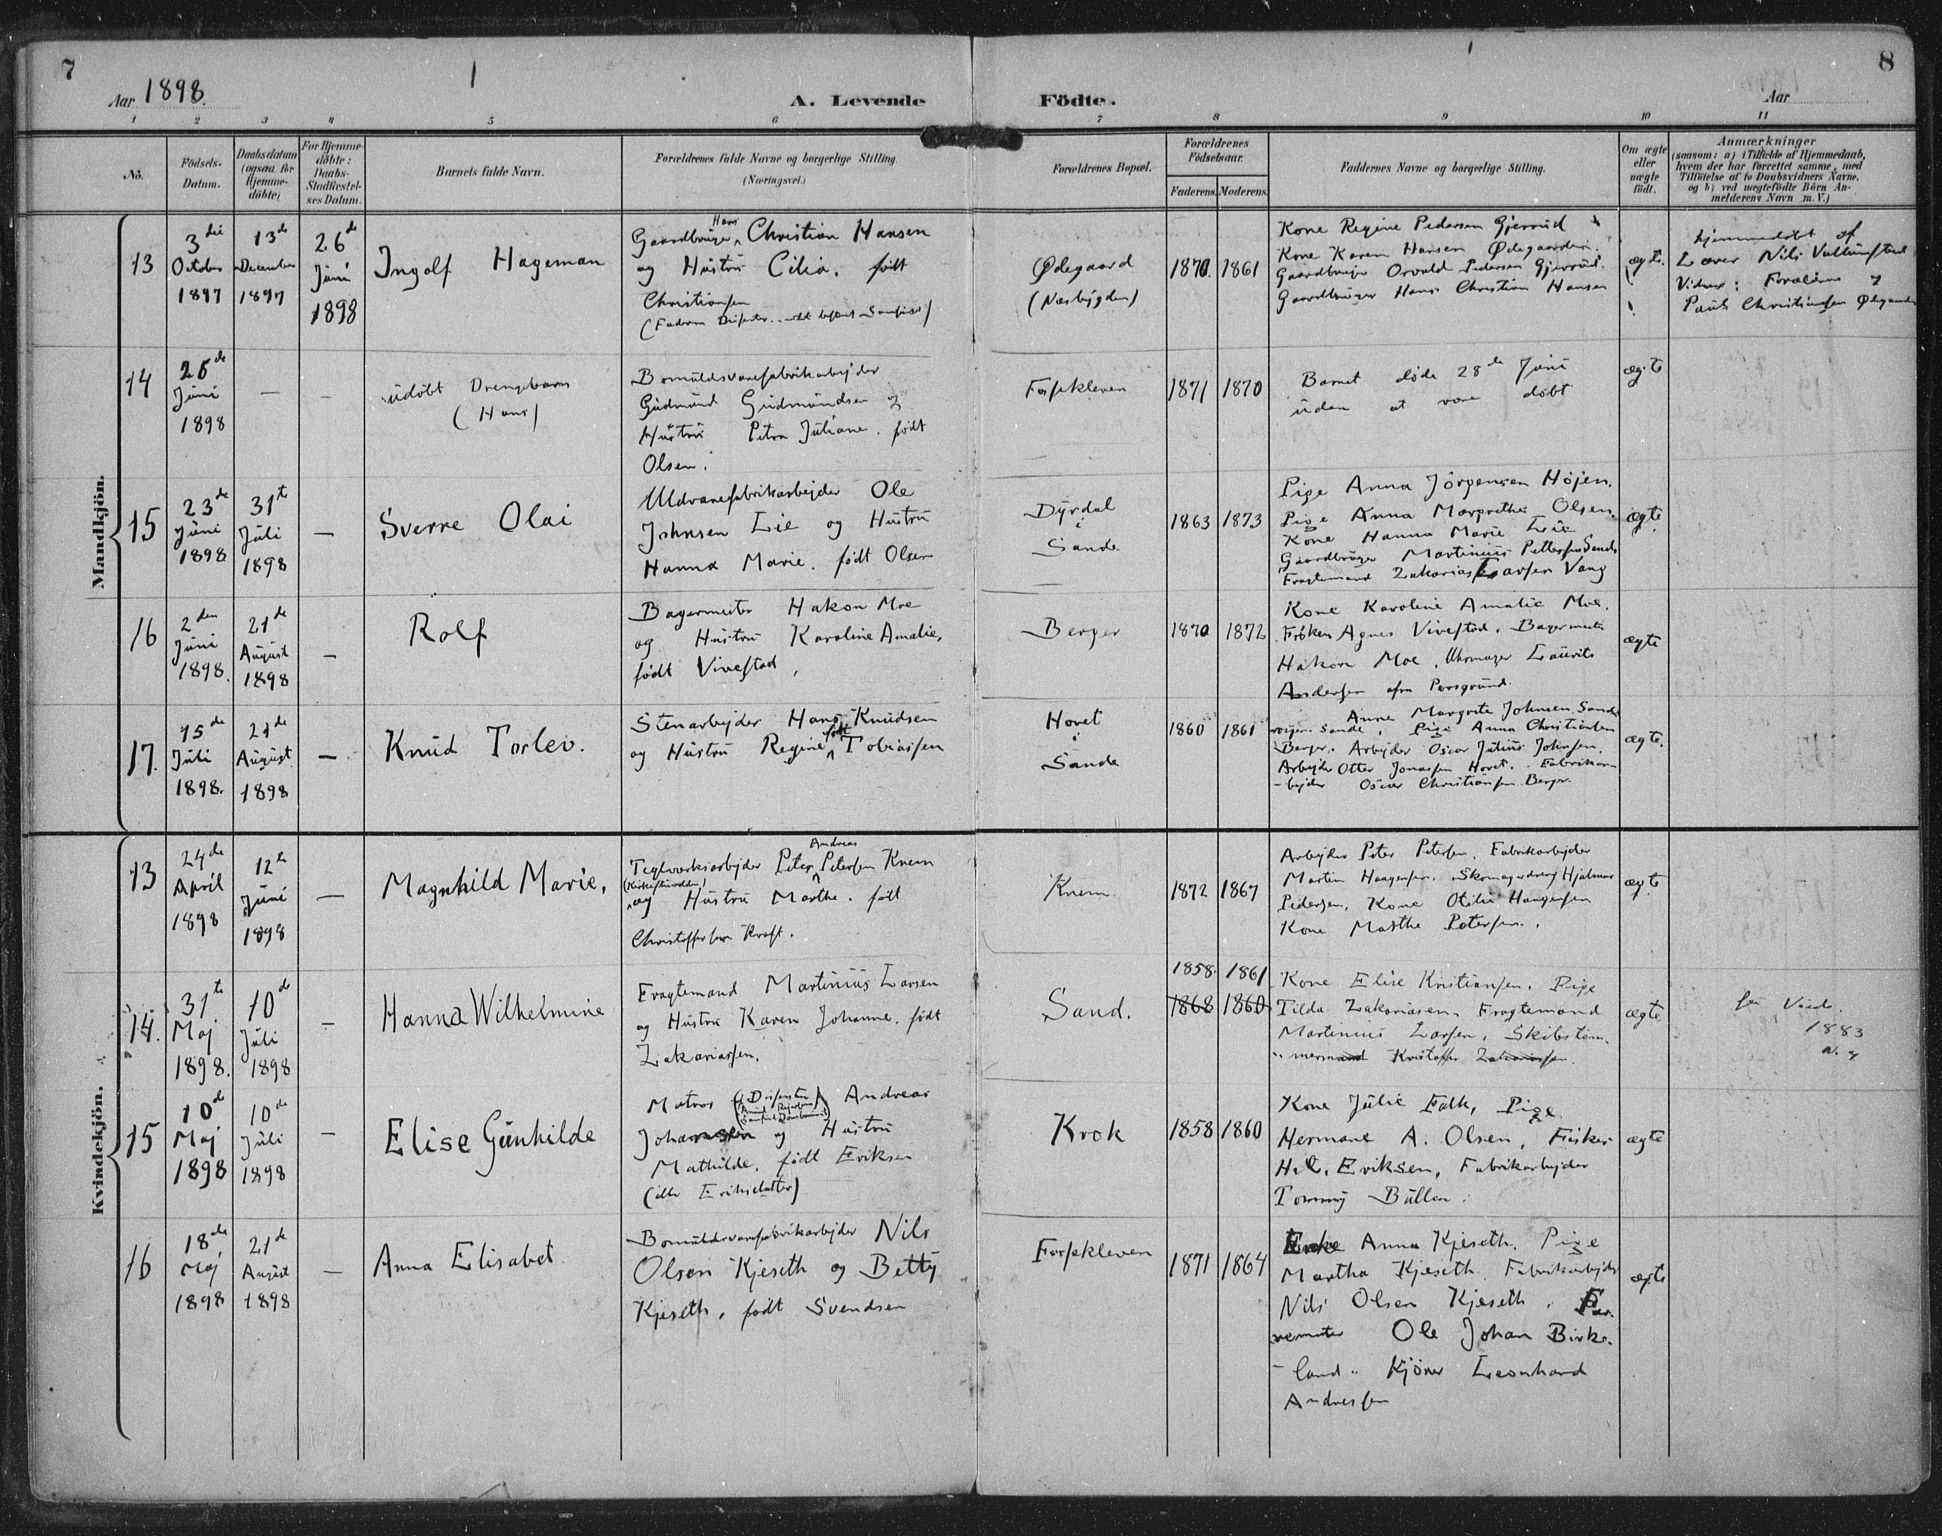 7
Aar 1898.
A. Levende Födte.
8
Aar
1 2 3 4 5 6 7 8 9 10 11
No.
Födsels-
Datum.
Daabsdatum
(ogsaa for
Hjemme-
döbte)
For Hjemme-
döbte:
Daabs-
Stadfæstel-
ses Datum.
Barnets fulde Navn.
Forældrenes fulde Navne og borgerlige Stilling.
(Næringsvei.)
Forældrenes Bopæl.
Forældrenes
Födselsaar.
Faderens. Moderens.
Faddernes Navne og borgerlige Stilling.
Om ægte
eller
uægte
födt.
Anmærkninger
(saasom: a) i Tilfælde af Hjemmedaab,
hvem der har forrettet samme, med
Tilföielse af to Daabsvidners Navne,
og b) ved uægtefödte Börn An-
melderens Navn m. V.)
Mandkjön.
13
3die
October
1897
13de
December
1897
26de
Juni
1898
Ingolf Hageman
Gaardbruger Hans Christian Hansen
og Hustru Cilia. født
Christiansen
Ødegaard
(Næsbygden)
1870. 1861
Kone Regine Pedersen Gjerrud
Kone Karen Hansen Ødegaarden.
Gaardbruger Osvald Pedersen Gjerrud.
Gaardbruger Hans Christian Hansen
ægte.
hjemmedøbt af
Lærer Nils
Vidner: Forældrene
Paul Christiansen Ødegaarden
14
26de
Juni
1898
— –
udøbt Drengebarn
(Hans)
Bomuldsvarefabrikarbejder
Gudmund Gudmundsen og
Hustru Petra Juliane. født
Olsen.
Fossekleven
1871 1870
Barnet døde 28de Juni
uden at være døbt
ægte
15
23de
Juni
1898
31te
Juli
1898
—
Sverre Olai
Uldvarefabrikarbejder Ole
Johnsen Lie og Hustru
Hanna Marie. født Olsen
Dyrdal
i
Sande
1863 1873
Pige Anna Jörgensen Höjen.
Pige Anna Margrethe Olsen.
Kone Hanna Marie Lie
Gaardbruger Martinius Pettersen Sande
Fragtemand Zakarias Larsen Vang
ægte.
16
2den
Juni
1898.
21de
August
1898
–
Rolf
Bagermester Hakon Moe
og Hustru Karoline Amalie,
født Vivestad,
Berger
1870 1872
Kone Karoline Amalie Moe.
Frøken Agnes Vivestad. Bagermester
Hakon Moe. Uhrmager Laurits
Andersen afra Porsgrund.
ægte
17.
15de
Juli
1898.
21de
August
1898
—
Knud Torlev.
Stenarbejder Hans Knudsen
og Hustru Regine født Tobiassen
Hovet
i
Sande
1860 1861
Anne Margrete Johnsen. Sande
Sande, Pige Anna Christiansen
Berger. Arbejder Oscar Julius Johnsen.
Arbejder Otter Jonassen Hovet. Fabrikar-
-bejder Oscar Christiansen Berger.
ægte.
Kvindekjön.
13
24de
April
1898
12te
Juni
1898
—
Magnhild Marie,
Teglværksarbejder Peter Andreas Petersen Knem
og Hustru Marthe. født
Christoffersen Kraft.
Knem
1872 1867
Arbejder Peter Petersen. Fabrikarbejder
Martin Haagensen. Skomagerdreng Hjalmar
Pedersen, Kone Otilie Haagensen
Kone Marthe Petersen.
ægte
14.
31te
Maj
1898.
10de
Juli
1898
–
Hanna Wilhelmine
Fragtemand Martinius Larsen
og Hustru Karen Johanne. født
Zakariassen.
Sand.
1858. 1861
1868 1860
Kone Elise Kristiansen, Pige
Tilda Zakariasen, Fragtemand
Martinius Larsen, Skibstøm-
mermand Kristoffer Zakariassen.
ægte
1883
15
10de
Maj
1898
10de
Juli
1898
–
Elise Gunhilde
Matros (Dissenter) Andreas
Johannesen og Hustru
Mathilde. født Eriksen
(eller Eriksdatter)
Krok
1858 1860
Kone Julie Falk, Pige
Hermane A. Olsen, Fisker
H. C. Eriksen, Fabrikarbejder
Tommy Bullen.
ægte
16
18de
Maj
1898
21de
August
1898
—
Anna Elisabet.
Bomuldsvarefabrikarbejder Nils
Olsen Kjeseth og Betty
Kjeseth, født Svendsen
Fossekleven
1871 1864
Enke Anna Kjeseth. Pige
Martha Kjeseth. Fabrikarbejder
Nils Olsen Kjeseth. Far-
vemester Ole Johan Birke-
-land. Kjører Leonhard
Andressen
ægte